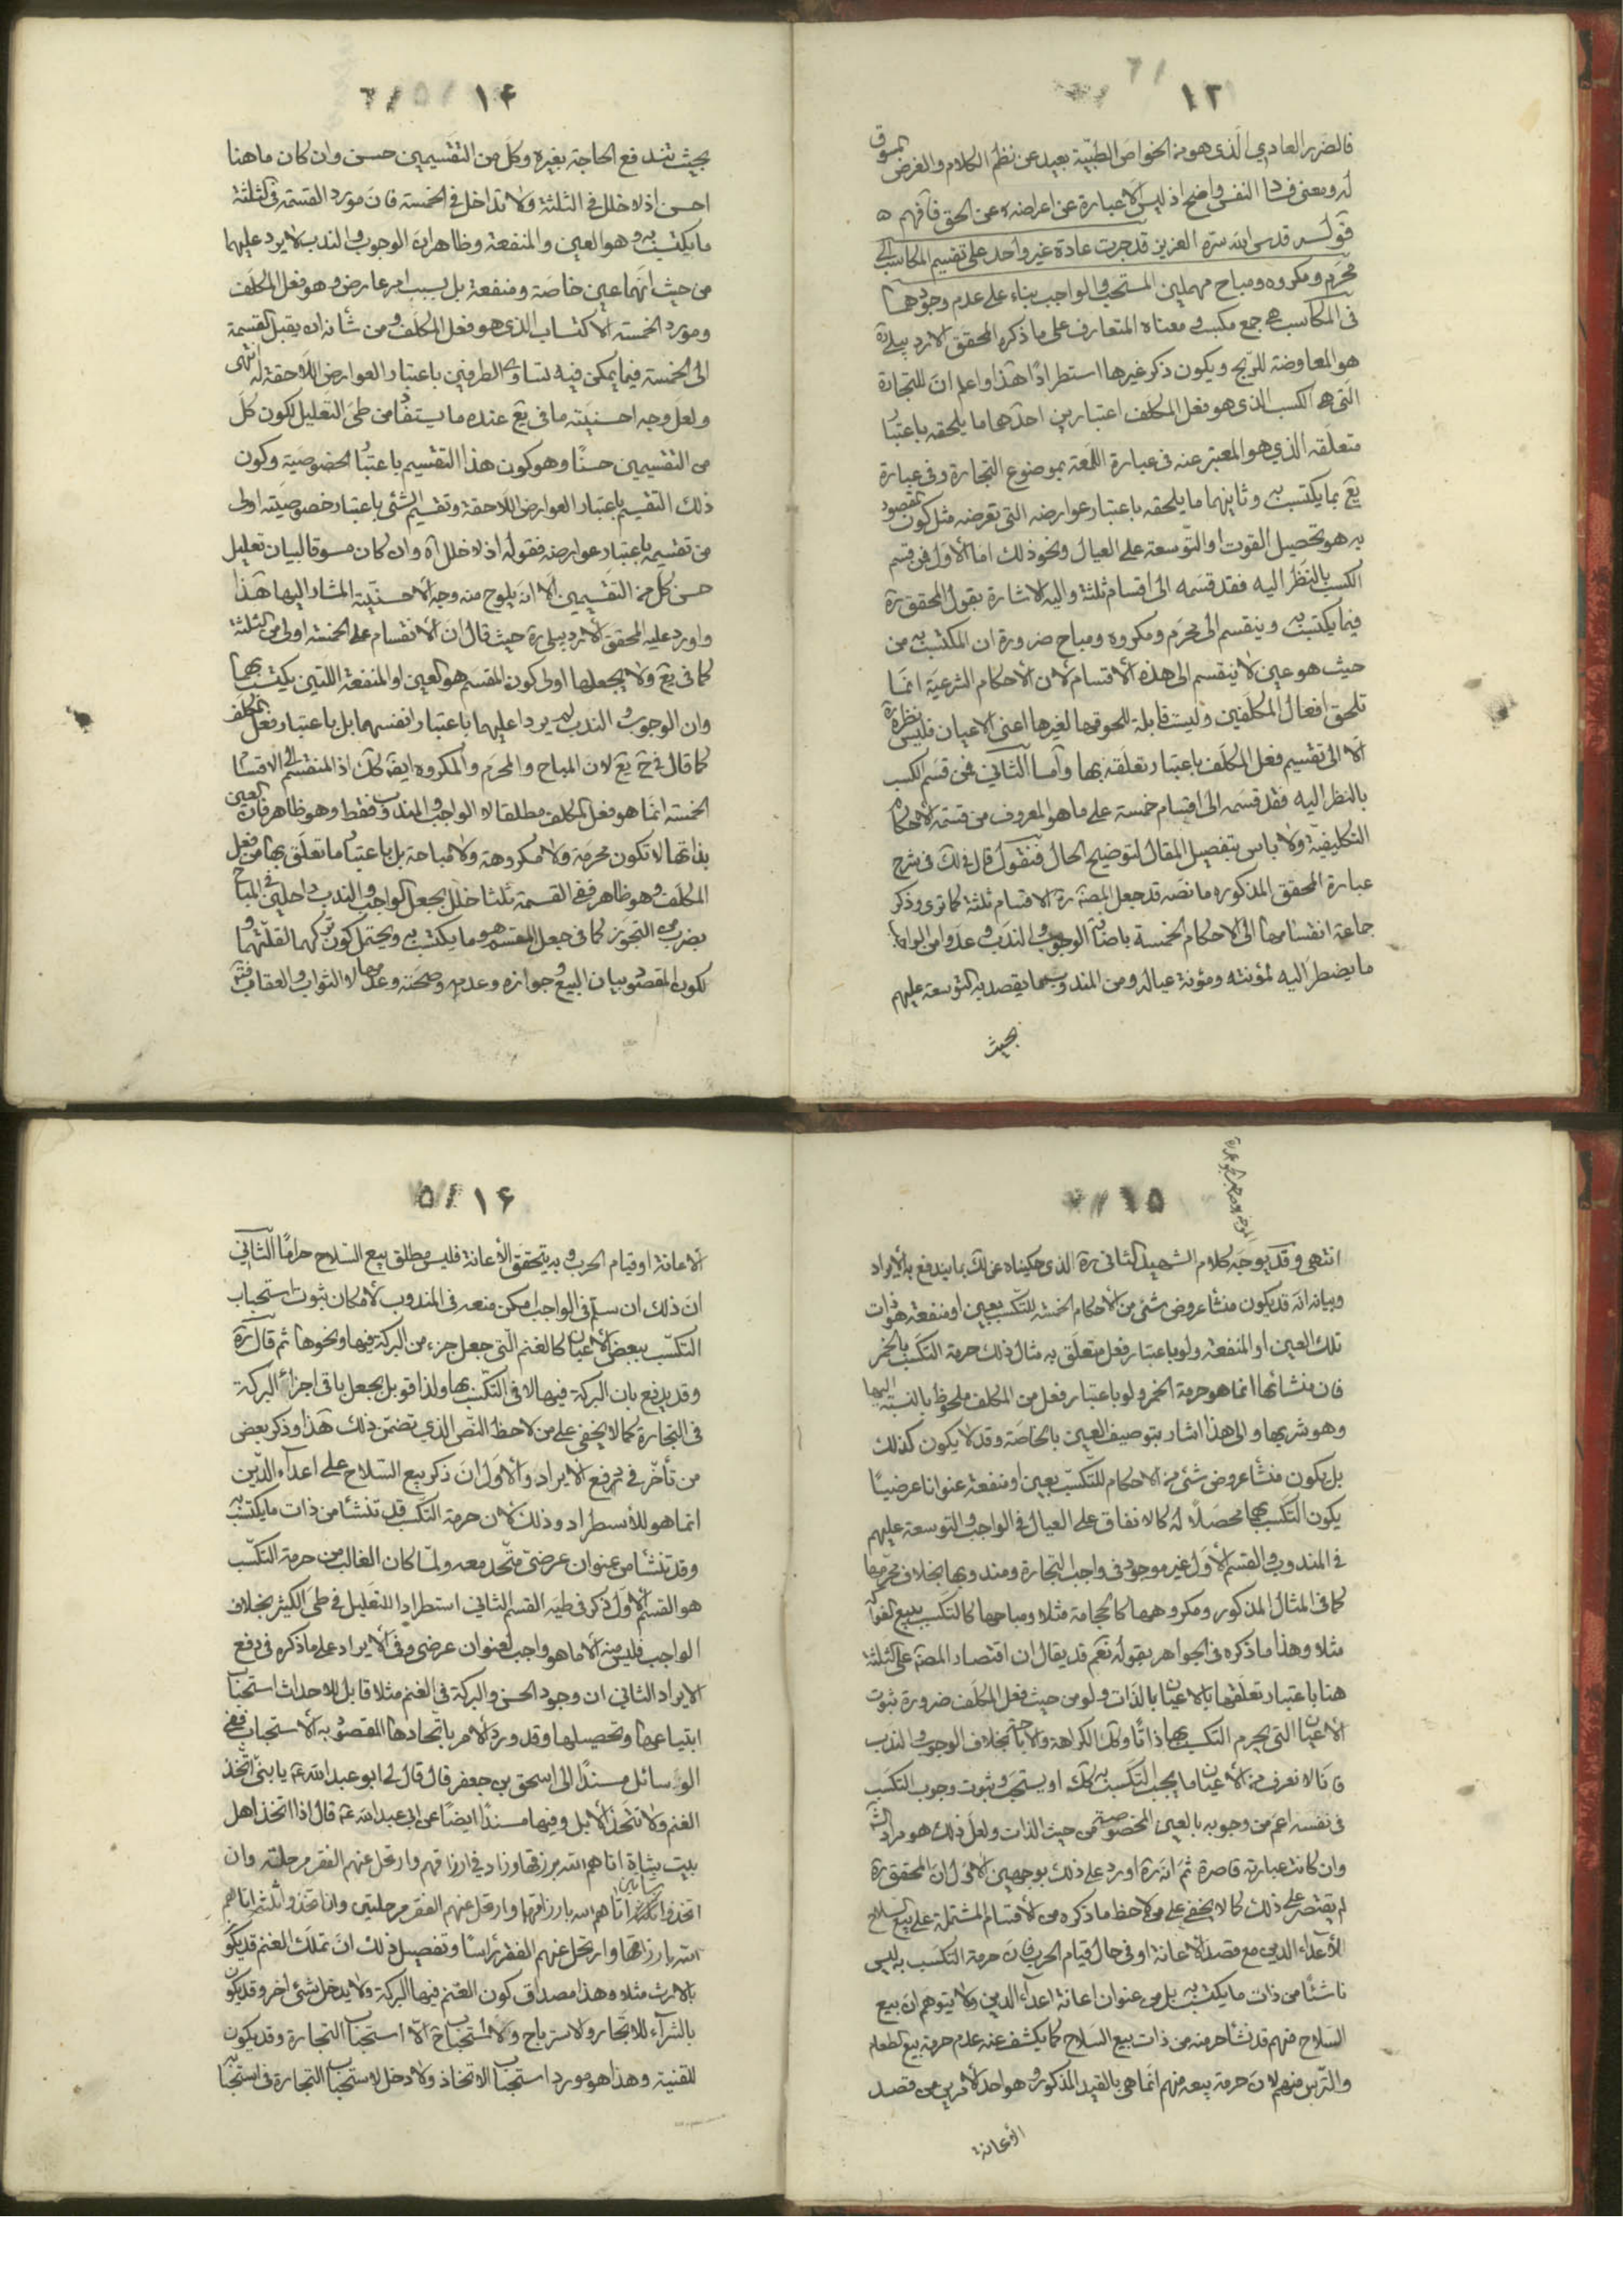 ١٣
فالضرر العادي الذى هو من الخواص الطبّية بعيد عن نظم الكلام والغرض المسوق
له ومعنى فساد النفس واضح اذ ليس الا عبارة عن اعراضه عن الحق فافهم
قوله قدس الله سره العزيز قد جرت عادة غير واحد على تقسيم المكاسب الى
محرم ومكروه ومباح مهملين المستحب والواجب بناء على عدم وجودهما
فى المكاسب هى جمع مكسب ومعناه المتعارف على ما ذكره المحقق الاردبيلى ره
هو المعاوضة للربح ويكون ذكر غيرها استطرادًا هذا واعلم ان للتجارة
الّتى هى الكسب الذى هو فعل المكلف اعتبارين احدهما ما يلحقه باعتبار
متعلقه الذي هو المعبّر عنه فى عبارة اللمعة بموضوع التجارة وفى عبارة
يع بما يكتسب به وثانيهما ما يلحقه باعتبار عوارضه التى تعرضه مثل كون المقصود
به هو تحصيل القوت او التّوسعة على العيال ونحو ذلك امّا الأول فمن قسم
الكسب بالنظر اليه فقد قسمه الى اقسام ثلثة واليه الاشارة بقول المحقق ره
فيما يكتسب به وينقسم الى محرم ومكروه ومباح ضرورة ان المكتسب به من
حيث هو عين لا ينقسم الى هذه الأقسام لأن الأحكام الشرعيّة انمّا
تلحق افعال المكلّفين وليست قابلة للحوقها لغيرها اعنى الاعيان فليس نظره ره
الّا الى تقسيم فعل المكلف باعتبار تعلقه بها وأمّا الثاني فمن قسم الكسب
بالنظر اليه فقد قسمه الى اقسام خمسة على ما هو المعروف من قسمة الاحكام
التكليفية ولا باس بتفصيل المقال لتوضيح الحال فنقول قال فى لك فى شرح
عبارة المحقق المذكوره ما نصه قد جعل المصنف ره الاقسام ثلثة كما ترى وذكر
جماعة انقسامها الى الاحكام الخمسة باضافة الوجوب والندب وعدوا من الواجب
ما يضطر اليه لمؤنته ومؤنة عياله ومن المندوب ما يقصد به التوسعة عليهم
بحيث
١۴
بحيث تندفع الحاجة بغيره وكل من التقسيمين حسن وان كان ما هنا
احسن اذ لا خلل فى الثلثة ولا تداخل فى الخمسة فان مورد القسمة فى الثلثة
ما يكتسب به وهو العين والمنفعة وظاهر ان الوجوب والندب لا يرد عليهما
من حيث انهما عين خاصة ومنفعة بل بسبب امر عارض وهو فعل المكلف
ومورد الخمسة الاكتساب الذى هو فعل المكلف ومن شانه ان يقبل القسمة
الى الخمسة فيما يمكن فيه تساوى الطرفين باعتبار العوارض اللاحقة له انتهى
ولعل وجه احسنيّته ما فى يع عنده ما يستفاد من طىّ التعليل لكون كل
من التقسيمين حسنًا وهو كون هذا التقسيم باعتبار الخصوصية وكون
ذلك التقسيم باعتبار العوارض اللاحقة وتقسيم الشئ باعتبار خصوصيته اولى
من تقسيمه باعتبار عوارضه فقوله اذ لا خلل آه وان كان مسوقا لبيان تعليل
حسن كل من التقسيمين الا انه يلوح منه وجه الأحسنيّة المشار اليها هذا
واورد عليه المحقق الأردبيلى ره حيث قال ان الأنقسام على الخمسة اولى من الثلثة
كما فى يع ولا يجعلها اولى كون المقسم هو العين او المنفعة اللتين يكتسب بهما
وان الوجوب والندب لم يردا عليهما باعتبار انفسهما بل باعتبار فعل المكلف
كما قال فى ح يع لان المباح والمحرم والمكروه ايضا كك اذ المنقسم الى الاقسام
الخمسة انما هو فعل المكلف مطلقا لا الواجب والمندوب فقط وهو ظاهر فان العين
بذاتها لا تكون محرمة ولا مكروهة ولا مباحة بل باعتبار ما تعلق بها من فعل
المكلف وهو ظاهر ففى القسمة ثلثا خلل بجعل الواجب والندب داخلين فى المباح
بضرب من التجوز كما فى جعل المقسم هو ما يكتسب به ويحتمل كون تركهما لقلتهما و
لكون المقصود بيان البيع وجوازه وعدمه وصحته وعدمها لا الثواب والعقاب فتو
١۵
انتهى وقد يوجه كلام الشهيد الثانى ره الذى حكيناه عن لك بما يندفع به الايراد
وبيانه انه قد يكون منشأ عروض شئ من الأحكام الخمسة للتكسب بعين او منفعة هو ذات
تلك العين او المنفعة ولو باعتبار فعل متعلق به مثال ذلك حرمة التكسب بالخمر
فان منشائها انما هو حرمة الخمر ولو باعتبار فعل من المكلف ملحوظ بالنسبة اليها
وهو شربها والى هذا اشار بتوصيف العين بالخاصة وقد لا يكون كذلك
بل يكون منشأ عروض شئ من الاحكام للتكسّب بعين او منفعة عنوانا عرضيًا
يكون التكسب بها محصلًا له كالانفاق على العيال فى الواجب والتوسعة عليهم
فى المندوب والقسم الأول غير موجود فى واجب التجارة ومندوبها بخلاف محرمها
كما فى المثال المذكور ومكروهها كالحجامة مثلا ومباحها كالتكسب ببيع الفواكه
مثلا وهذا ما ذكره فى الجواهر بقوله نعم قد يقال ان اقتصار المصنف على الثلثة
هنا باعتبار تعلقها بالاعيان بالذات ولو من حيث فعل المكلف ضرورة ثبوت
الأعيان التى يحرم التكسب بها ذاتًا وكك الكراهة والاباحة بخلاف الوجوب والندب
فانا لا نعرف من الأعيان ما يجب التكسب به كك او يستحب وثبوت وجوب التكسب
فى نفسه اعم من وجوبه بالعين المخصوصة من حيث الذات ولعل ذلك هو مراد
وان كانت عبارته قاصرة ثم انه ره اورد على ذلك بوجهين الاول ان المحقق ره
لم يقتصر على ذلك كما لا يخفى على من لاحظ ما ذكره من الأقسام المشتملة على بيع السلاح
لأعداء الدين مع قصد الاعانة او فى حال قيام الحرب فان حرمة التكسب به ليس
ناشئًا من ذات ما يكتسب به بل من عنوان اعانة اعداء الدين ولا يتوهم ان بيع
السلاح منهم قد نشأ حرمته من ذات بيع السلاح كما يكشف عنه عدم حرمة بيع الطعام
والترس منهم لان حرمة بيعه منهم انما هى بالقيد المذكور وهو احد الأمرين من قصد
الأعانة
١۶
الأعانة او قيام الحرب وبه يتحقق الأعانة فليس مطلق بيع السلاح حرامًا الثاني
ان ذلك ان سلم فى الواجب امكن منعه فى المندوب لأمكان ثبوت استحباب
التكسّب ببعض الأعيان كالغنم الّتي جعل جزء من البركة فيها ونحوها ثم قال ره
وقد يدفع بان البركة فيها لا فى التكسّب بها ولذا قوبل بجعل باقى اجزاء البركة
فى التجارة كما لا يخفى على من لاحظ النص الذي تضمن ذلك هذا وذكر بعض
من تأخر فى دفع الأيراد الأول ان ذكر بيع السّلاح على اعداء الدين
انما هو للأستطراد وذلك لان حرمة التكسب قد تنشأ من ذات ما يكتسب به
وقد تنشأ من عنوان عرضىّ متّحد معه ولمّا كان الغالب من حرمة التكسّب
هو القسم الأول ذكر فى طيه القسم الثاني استطرادا للتقليل فى طىّ الكثير بخلاف
الواجب فليس منه الا ما هو واجب لعنوان عرضى وفى الأيراد على ما ذكره فى دفع
الايراد الثاني ان وجود الحسن والبركة فى الغنم مثلا قابل للاحداث استحباب
ابتياعها وتحصيلها وقد ورد الأمر باتخاذها المقصود به الأستحباب ففى
الوسائل مسندًا الى اسحق بن جعفر قال قال لى ابو عبد الله ع يا بنىّ اتخذ
الغنم ولا تتخذ الأبل وفيها مسندًا ايضًا عن ابى عبد الله ع قال اذا اتخذ اهل
بيت شاة اتاهم الله برزقها وزاد فى ارزاقهم وارتحل عنهم الفقر مرحلة وان
اتخذوا شاتين اتاهم الله بارزاقهما وارتحل عنهم الفقر مرحلتين وان اتخذوا ثلثة اتاهم
الله بارزاقها وارتحل عنهم الفقر رأسًا وتفصيل ذلك ان تملك الغنم قد يكون
بالارث مثلا وهذا مصداق كون الغنم فيها البركة ولا يدخل شئ اخر وقد يكون
بالشراء للاتجار والاسترباح ولا استحباب ح الّا استحباب التجارة وقد يكون
للقنية وهذا هو مورد استحباب الاتخاذ ولا دخل لاستحباب التجارة فى استحبابه